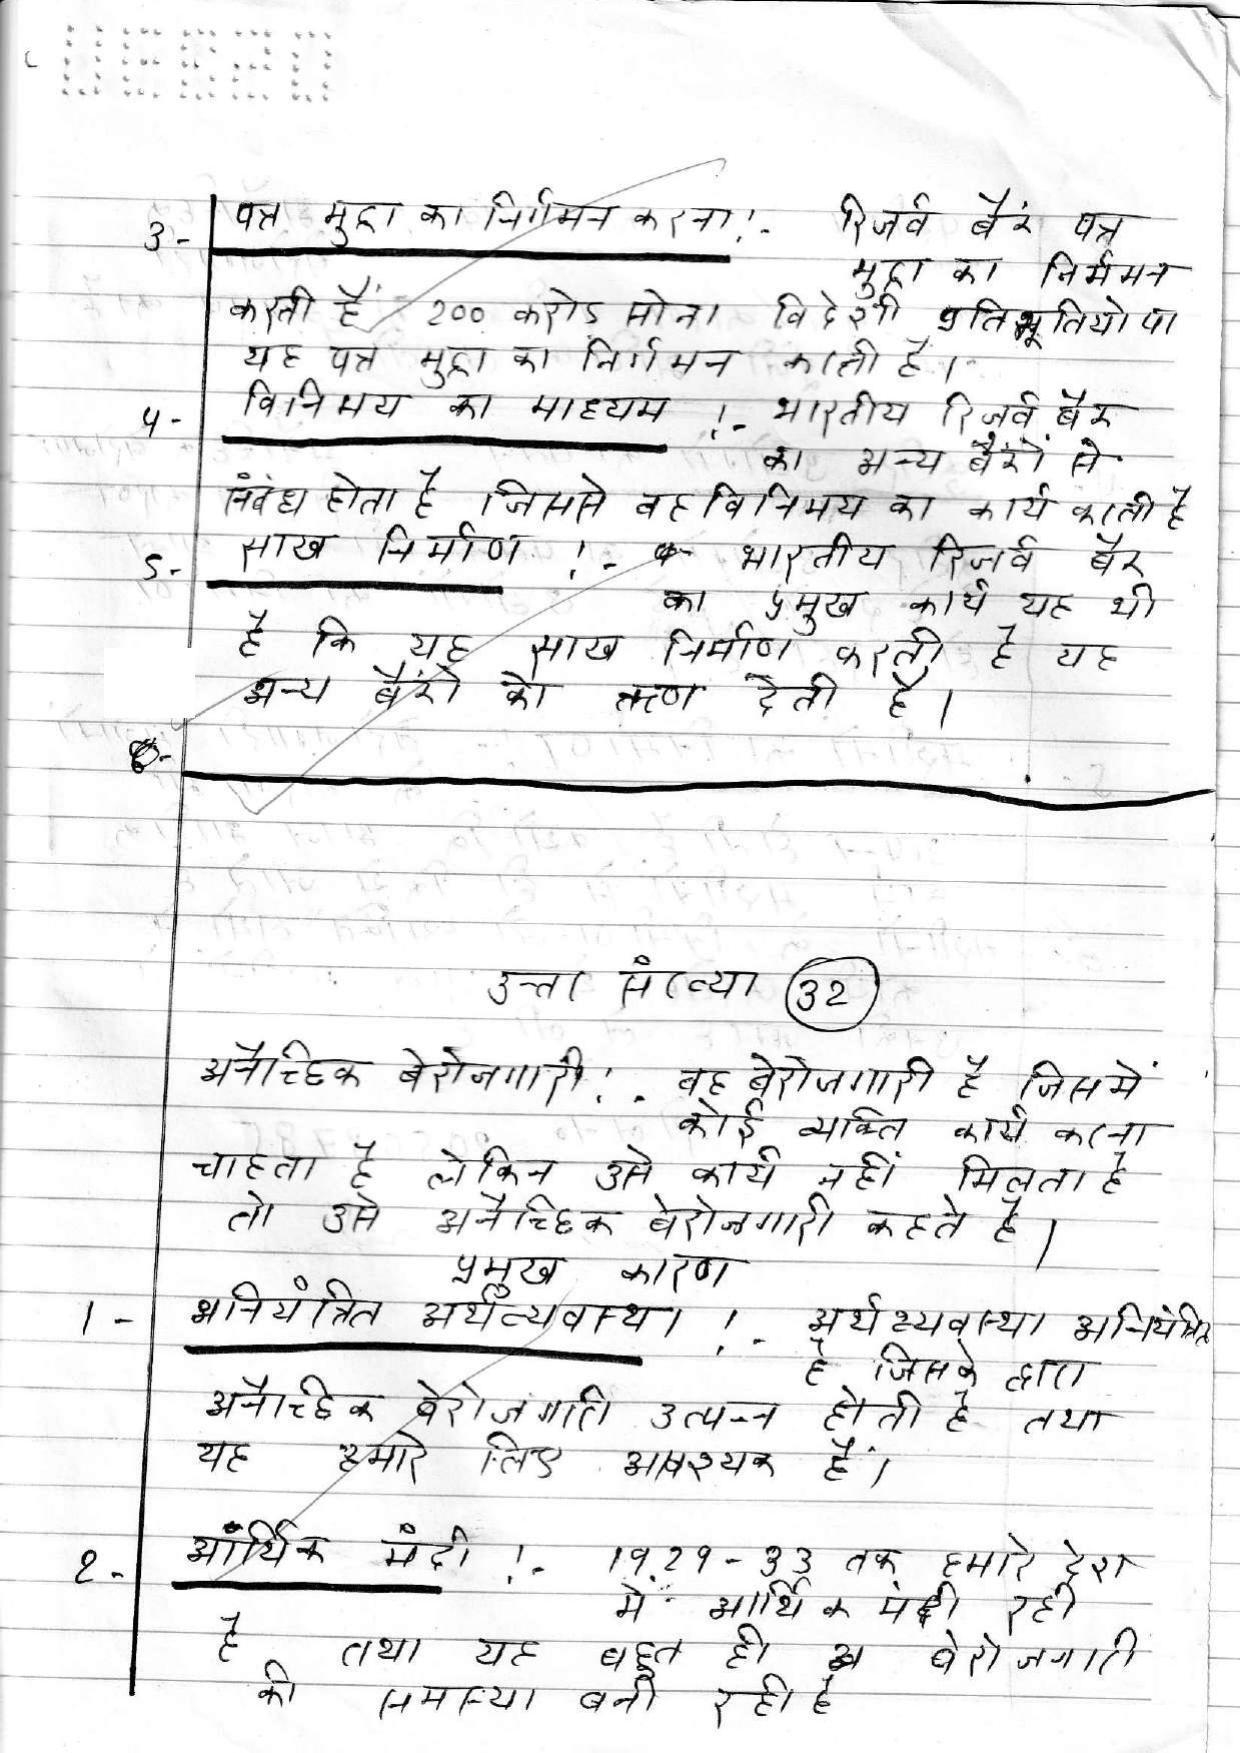 3- पत्र मुद्रा का निर्गमन करना!- रिजर्व बैंक पत्र
मुद्रा का निर्गमन
करती हैं 200 करोड सोना विदेशी प्रतिभूतियो पर
यह पत्र मुद्रा का निर्गमन करती है।
4- विनिमय का माध्यम !- भारतीय रिजर्व बैंक
का अन्य बैंकों से
संबंध होता है जिससे वह विनिमय का कार्य करती है
5- साख निर्माण !- भारतीय रिजर्व बैंक
का प्रमुख कार्य यह भी
है कि यह साख निर्माण करती है यह
अन्य बैंकों को ऋण देती है।
उत्तर संख्या 32
अनैच्छिक बेरोजगारी!- वह बेरोजगारी है जिसमें
कोई व्यक्ति कार्य करना
चाहता है लेकिन उसे कार्य नहीं मिलता है
तो उसे अनैच्छिक बेरोजगारी कहते है।
प्रमुख कारण
1- अनियंत्रित अर्थव्यवस्था !- अर्थव्यवस्था अनियंत्रित
है जिसके द्वारा
अनैच्छिक बेरोजगारी उत्पन्न होती है तथा
यह हमारे लिए आवश्यक हैं।
2- आर्थिक मंदी !- 1929-33 तक हमारे देश
में आर्थिक मंदी रही
है तथा यह बहुत ही बेरोजगारी
की समस्या बनी रही है